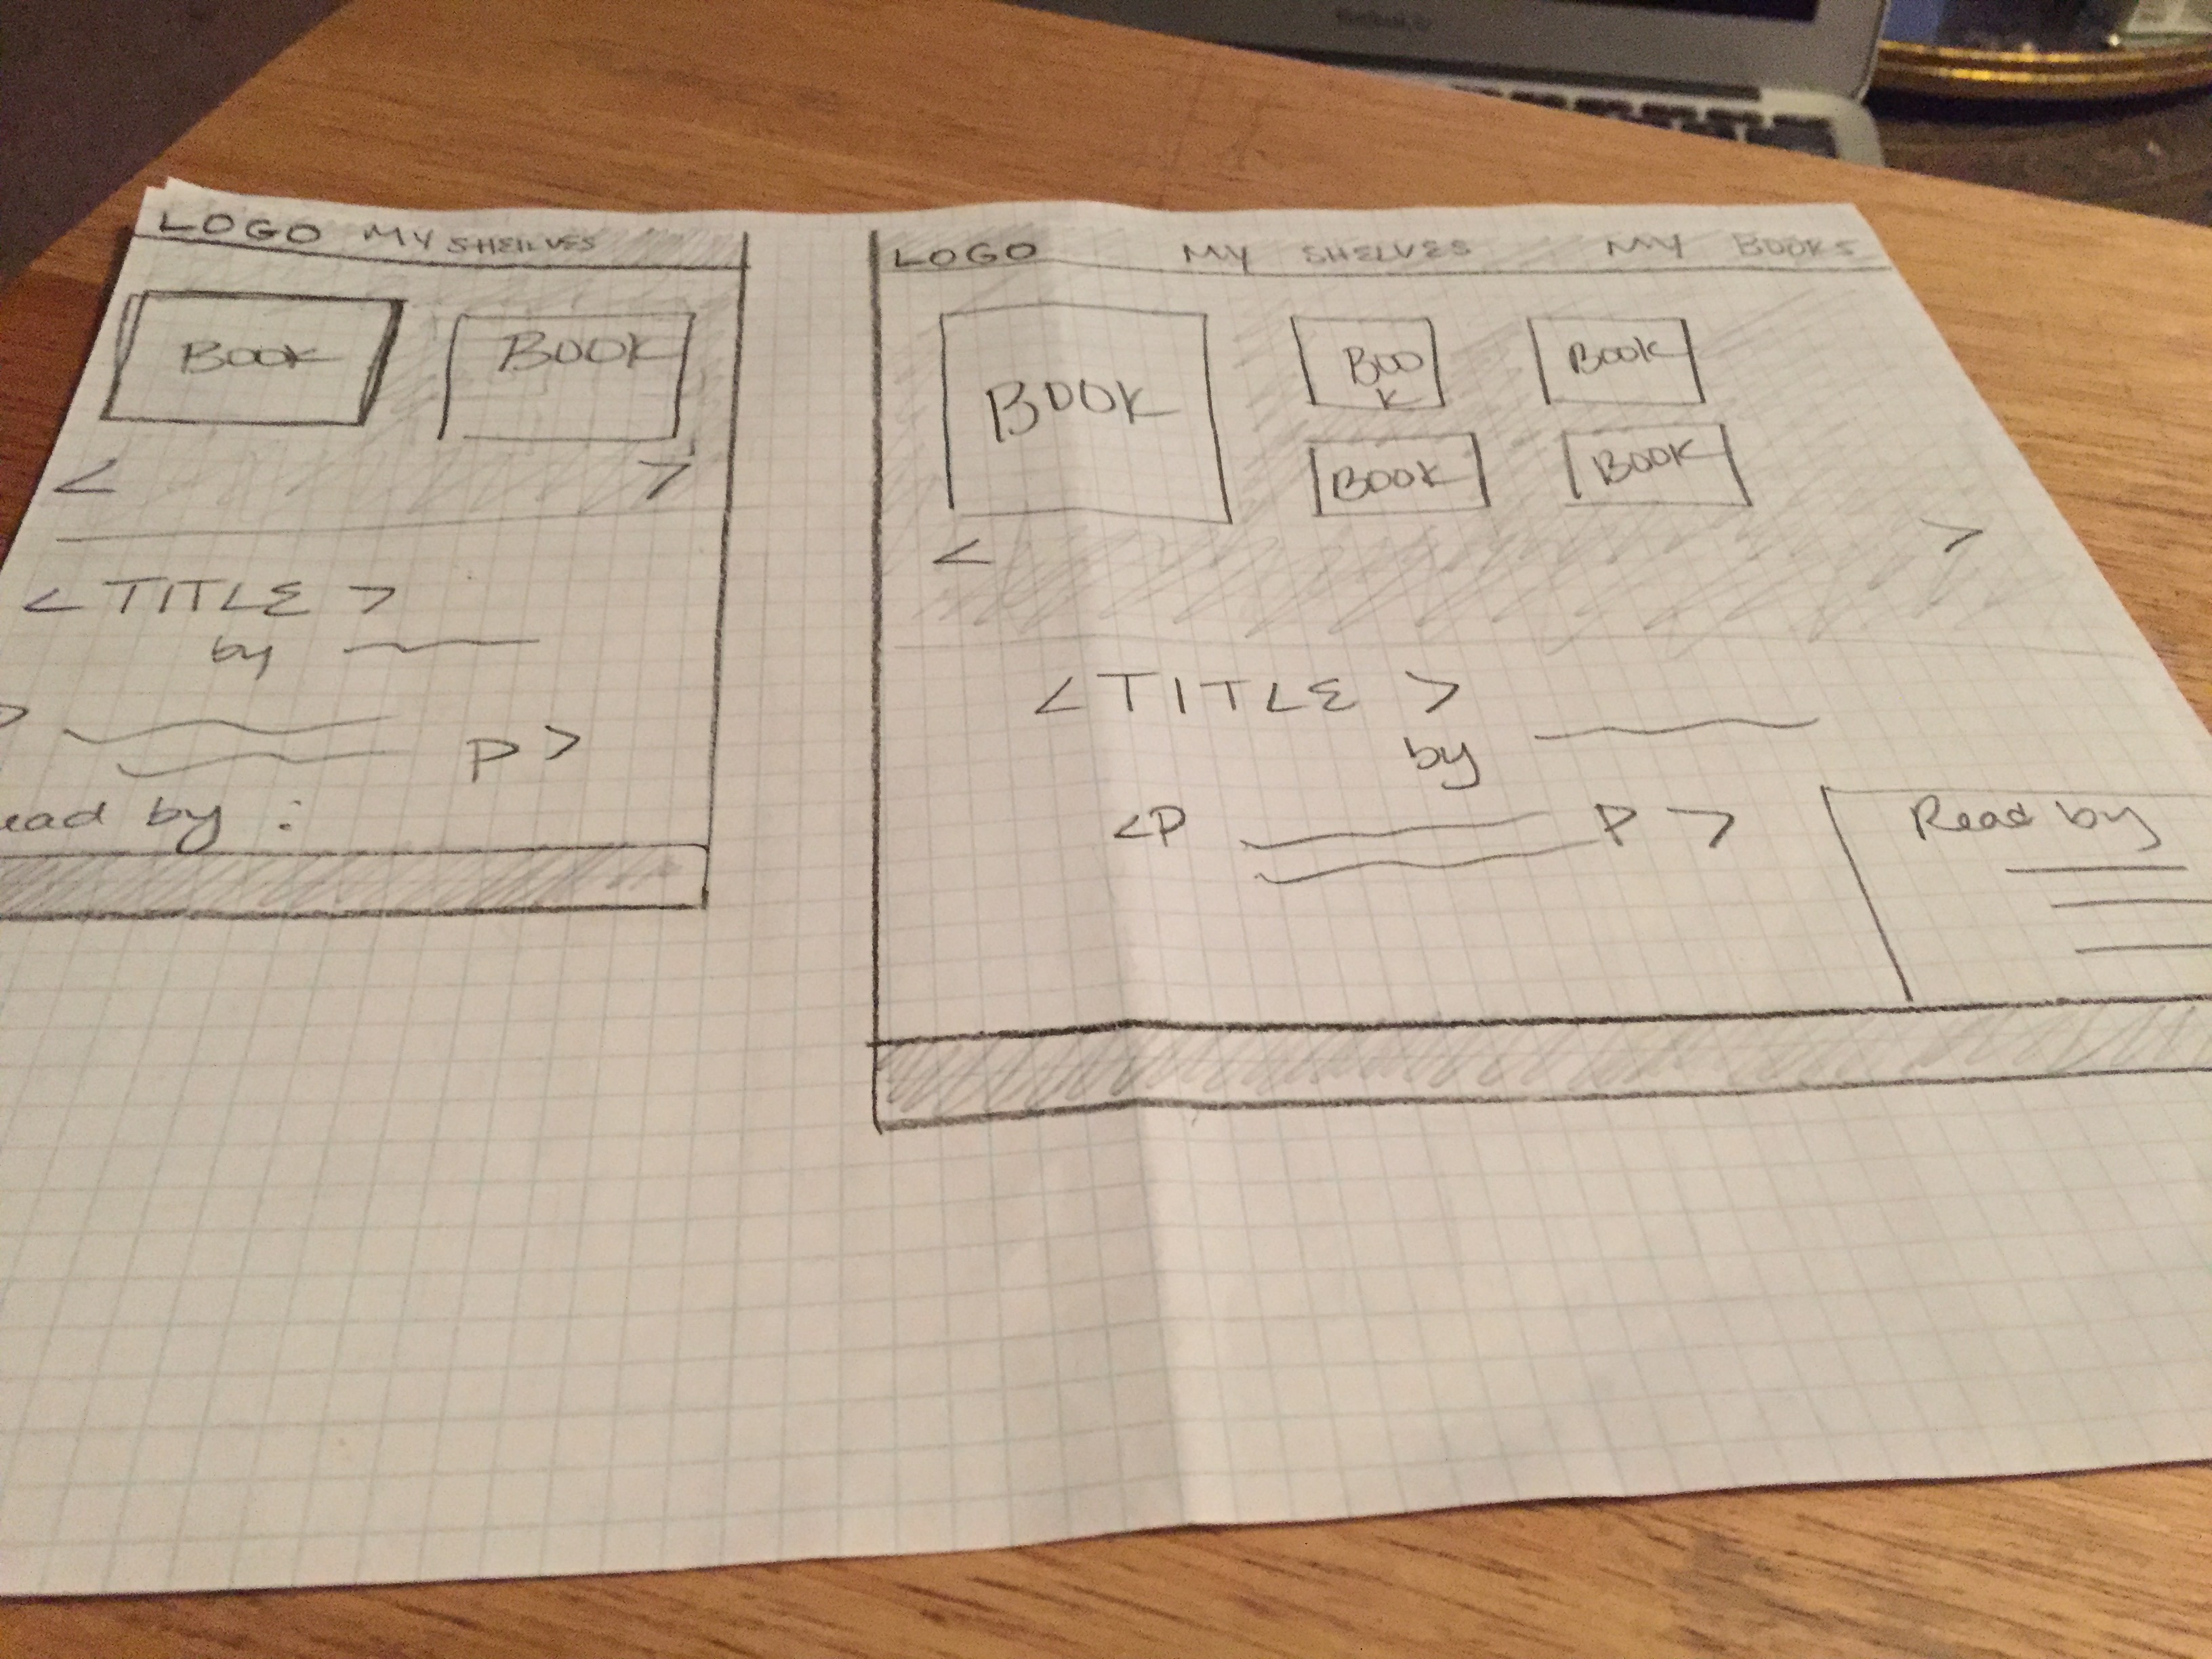 LOGO MY SHELVES
BOOK BOOK
< >
< TITLE >
by
> P >
ead by :
LOGO MY SHELVES MY BOOKS
BOOK
BOO
K
BOOK
BOOK BOOK
< >
< TITLE >
by
<P P >
Read by